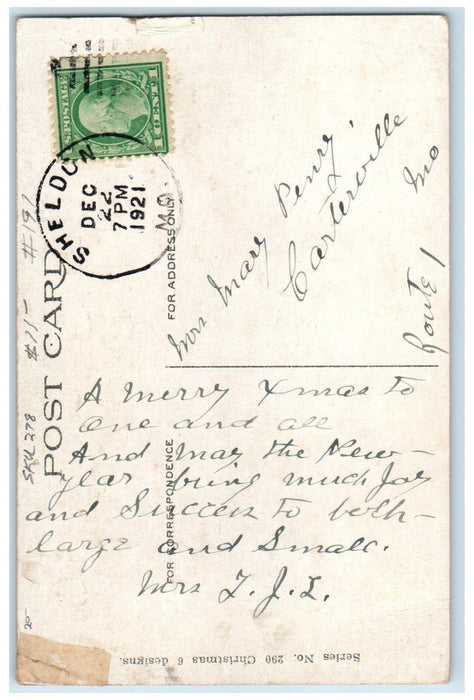 1 CENT 1
POSTAGE
SHELDON
DEC
22
7 PM
1921
MO.
#191
#11-
SKU 278
POST CARD
FOR ADDRESS ONLY.
Mrs Mary Penry,
Carterville
Mo
Route 1
FOR CORRESPONDENCE
A Merry Xmas to
one and all
And May the New-
year bring much Joy
and Success to both-
large and Small.
Mrs T. J. L.
20-
Series No. 290 Christmas 6 designs.